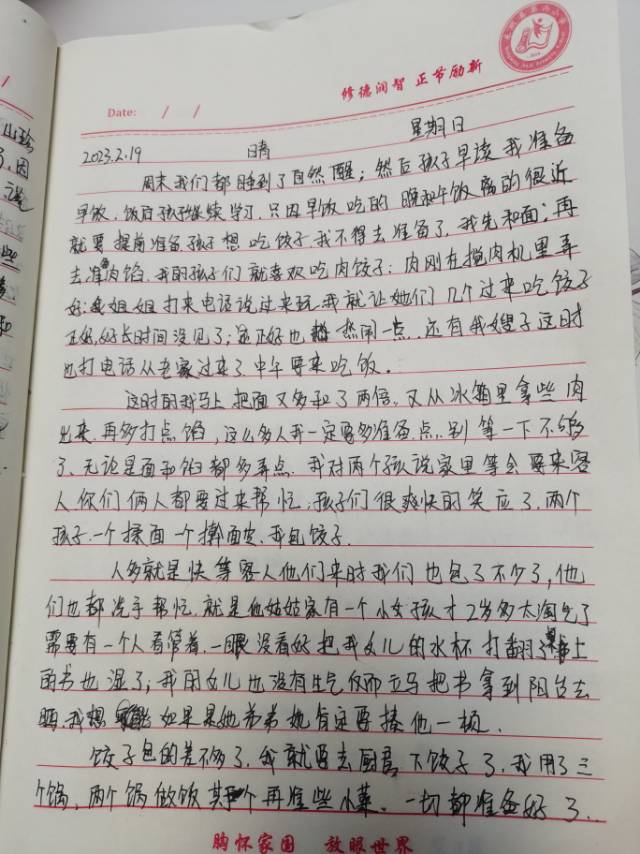 修德润智 正节励新
Date: / /
山珍
2023.2.19 晴 星期日
周末我们都睡到了自然醒；然后孩子早读我准备
早饭，饭后孩子继续学习，只因早饭吃的晚和午饭离的很近
就要提前准备孩子想吃饺子我不得去准备了，我先和面；再
去准肉馅，我的孩子们就喜欢吃肉饺子；肉刚在搅肉机里弄
好姐姐打来电话说过来玩我就让她们几个过来吃饺子
正好，好长时间没见了；正好也热闹一点，还有我嫂子这时
也打电话从老家过来了中午要来吃饭。
这时的我马上把面又多和了两倍，又从冰箱里拿些肉
出来，再多打点馅，这么多人我一定要多准备点，别等一下不够
了、无论是面和馅都多弄点，我对两个孩说家里等会要来客
人你们俩人都要过来帮忙，孩子们很爽快的笑应了，两个
孩子一个揉面一个擀面皮，我包饺子。
人多就是快等客人他们来时我们也包了不少了，他
们也都洗手帮忙，就是他姑姑家有一个小女孩才2岁多太淘气了
需要有一个人看管着，一眼没看好把我女儿的水杯打翻了桌上
图书也湿了；我的女儿也没有生气反而立马把书拿到阳台去
晒，我想如果是她弟弟她肯定要揍他一顿。
饺子包的差不多了，我就要去厨房下饺子了，我用了三
个锅，两个锅做饭其个再准些小菜，一切都准备好了..
胸怀家国 放眼世界